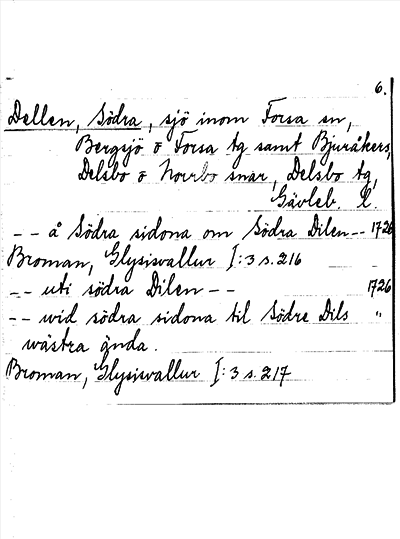 6.
Dellen, Södra, sjö inom Forsa sn,
Bergsjö o Forsa tg samt Bjuråkers,
Delsbo o Norrbo snar, Delsbo tg,
Gävleb. l.
-- å Södra sidona om Södra Dilen -- 1726
Broman, Glysisvallur I:3 s. 216
-- uti södra Dilen -- 1726
-- wid södra sidona til Södre Dils "
wästra ända.
Broman, Glysisvallur I:3 s. 217